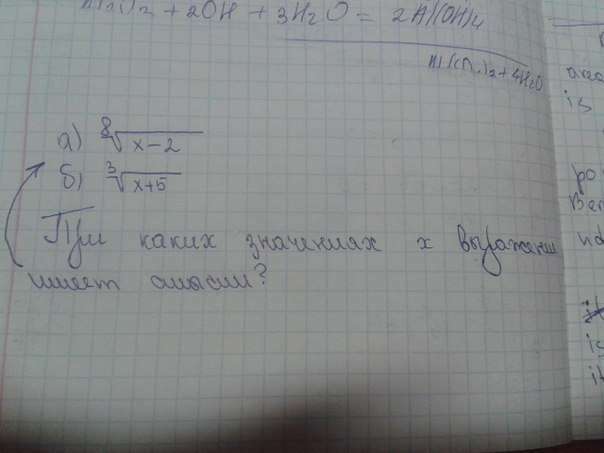 + 2OH + 3H2O = 2Al(OH)4
+ 4H2O
а) ⁸√x-2
б) ³√x+5
При каких значениях x выражение
имеет смысл?
is